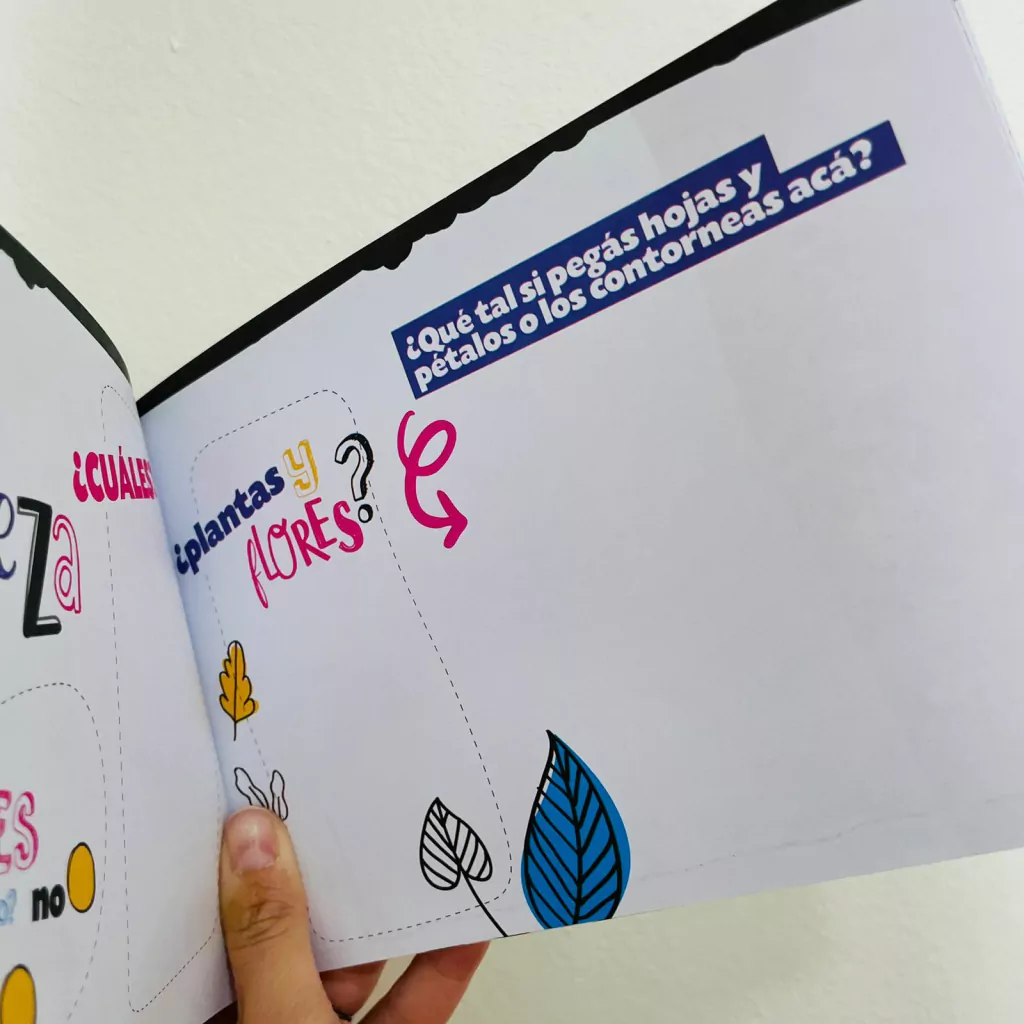 ¿CUÁLES
eza
ES
no
¿Qué tal si pegás hojas y
pétalos o los contorneas acá?
¿plantas y
FLORES?